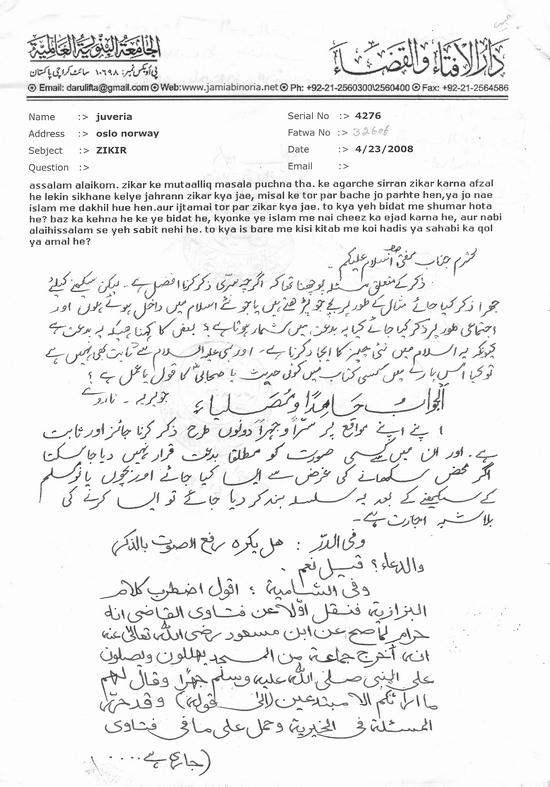 دارالافتاء والقضاء
الجامعة البنورية العالمية
پی او بکس نمبر: ۱۰۶۹۸ سائٹ کراچی پاکستان
Email: darulifta@gmail.com Web:www.jamiabinoria.net Ph: +92-21-2560300\2560400 Fax: +92-21-2564586
Name :> juveria Serial No :> 4276
Address :> oslo norway Fatwa No :> 32606
Subject :> ZIKIR Date :> 4/23/2008
Question :> Email :>
assalam alaikom. zikar ke mutaalliq masala puchna tha. ke agarche sirran zikar karna afzal
he lekin sikhane kelye jahrann zikar kya jae, misal ke tor par bache jo parhte hen,ya jo nae
islam me dakhil hue hen.aur ijtamai tor par zikar kya jae. to kya yeh bidat me shumar hota
he? baz ka kehna he ke ye bidat he, kyonke ye islam me nai cheez ka ejad karna he, aur nabi
alaihissalam se yeh sabit nehi he. to kya is bare me kisi kitab me koi hadis ya sahabi ka qol
ya amal he?
محترم جناب مفتی صاحب السلام علیکم
ذکر کے متعلق مسئلہ پوچھنا تھا کہ اگرچہ سری ذکر کرنا افضل ہے۔ لیکن سیکھنے کیلئے
جہرا ذکر کیا جائے مثال کے طور پر بچے جو پڑھتے ہیں یا جو نئے اسلام میں داخل ہوئے ہوں اور
اجتماعی طور پر ذکر کیا جائے کیا یہ بدعت میں شمار ہوتا ہے؟ بعض کا کہنا ہیکہ یہ بدعت ہے
کیونکہ یہ اسلام میں نئی چیز کا ایجاد کرنا ہے۔ اور نبی علیہ السلام سے ثابت بھی نہیں ہے
تو کیا اس بارے میں کسی کتاب میں کوئی حدیث یا صحابی کا قول یا عمل ہے؟
جویریہ۔ ناروے
الجواب حامدا ومصلیا
اپنے اپنے مواقع پر سرّاً وجہراً دونوں طرح ذکر کرنا جائز اور ثابت
ہے۔ اور ان میں سے کسی صورت کو مطلقا بدعت قرار نہیں دیا جا سکتا
اگر محض سکھانے کی غرض سے ایسا کیا جائے اور بچوں یا نو مسلم
کے سیکھنے کے بعد یہ سلسلہ بند کر دیا جائے تو ایسا کرنے کی
بلاشبہ اجازت ہے۔
وفی الدر: هل یکره رفع الصوت بالذکر
والدعاء؟ قیل نعم۔
وفی الشامیة: اقول اضطرب کلام
البزازیة فنقل اولا عن فتاوی القاضی انه
حرام لما صح عن ابن مسعود رضی الله تعالی عنه
انه أخرج جماعة من المسجد یهللون ویصلون
علی النبی صلی الله علیه وسلم جهرًا وقال لهم
ما اراکم الا مبتدعین (الی قوله) وقد حرر
المسئلة فی الخیریة وحمل علی ما فی فتاوی
(جاری ہے.....